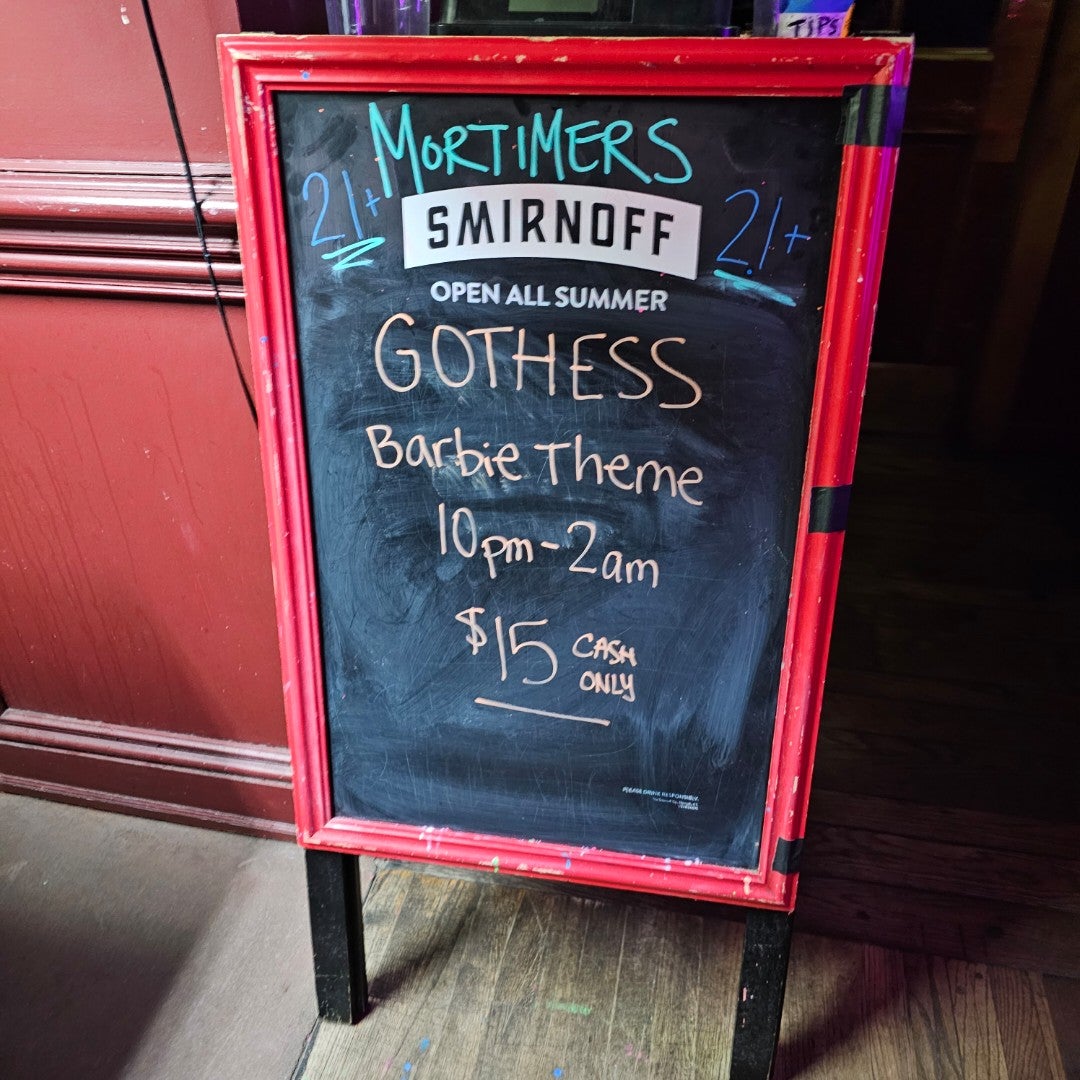 TIPS
MORTIMERS
21+ 21+
SMIRNOFF
OPEN ALL SUMMER
GOTHESS
Barbie Theme
10pm - 2am
$15 CASH
ONLY
PLEASE DRINK RESPONSIBLY.